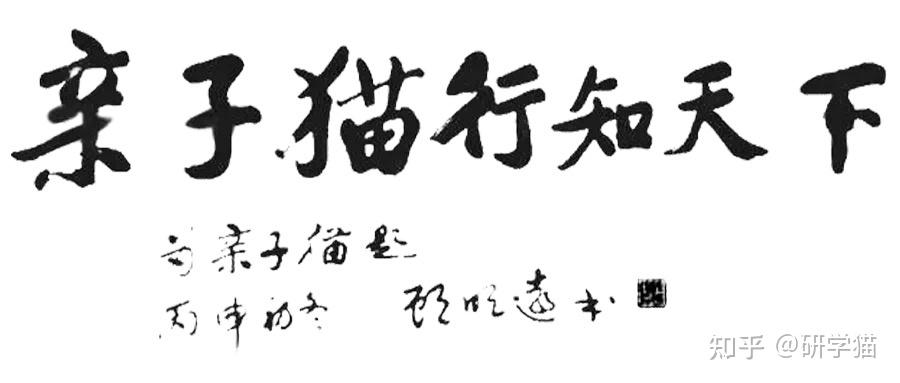 亲子猫行知天下
为亲子猫题
丙申初冬 顾明远书
知乎 @研学猫